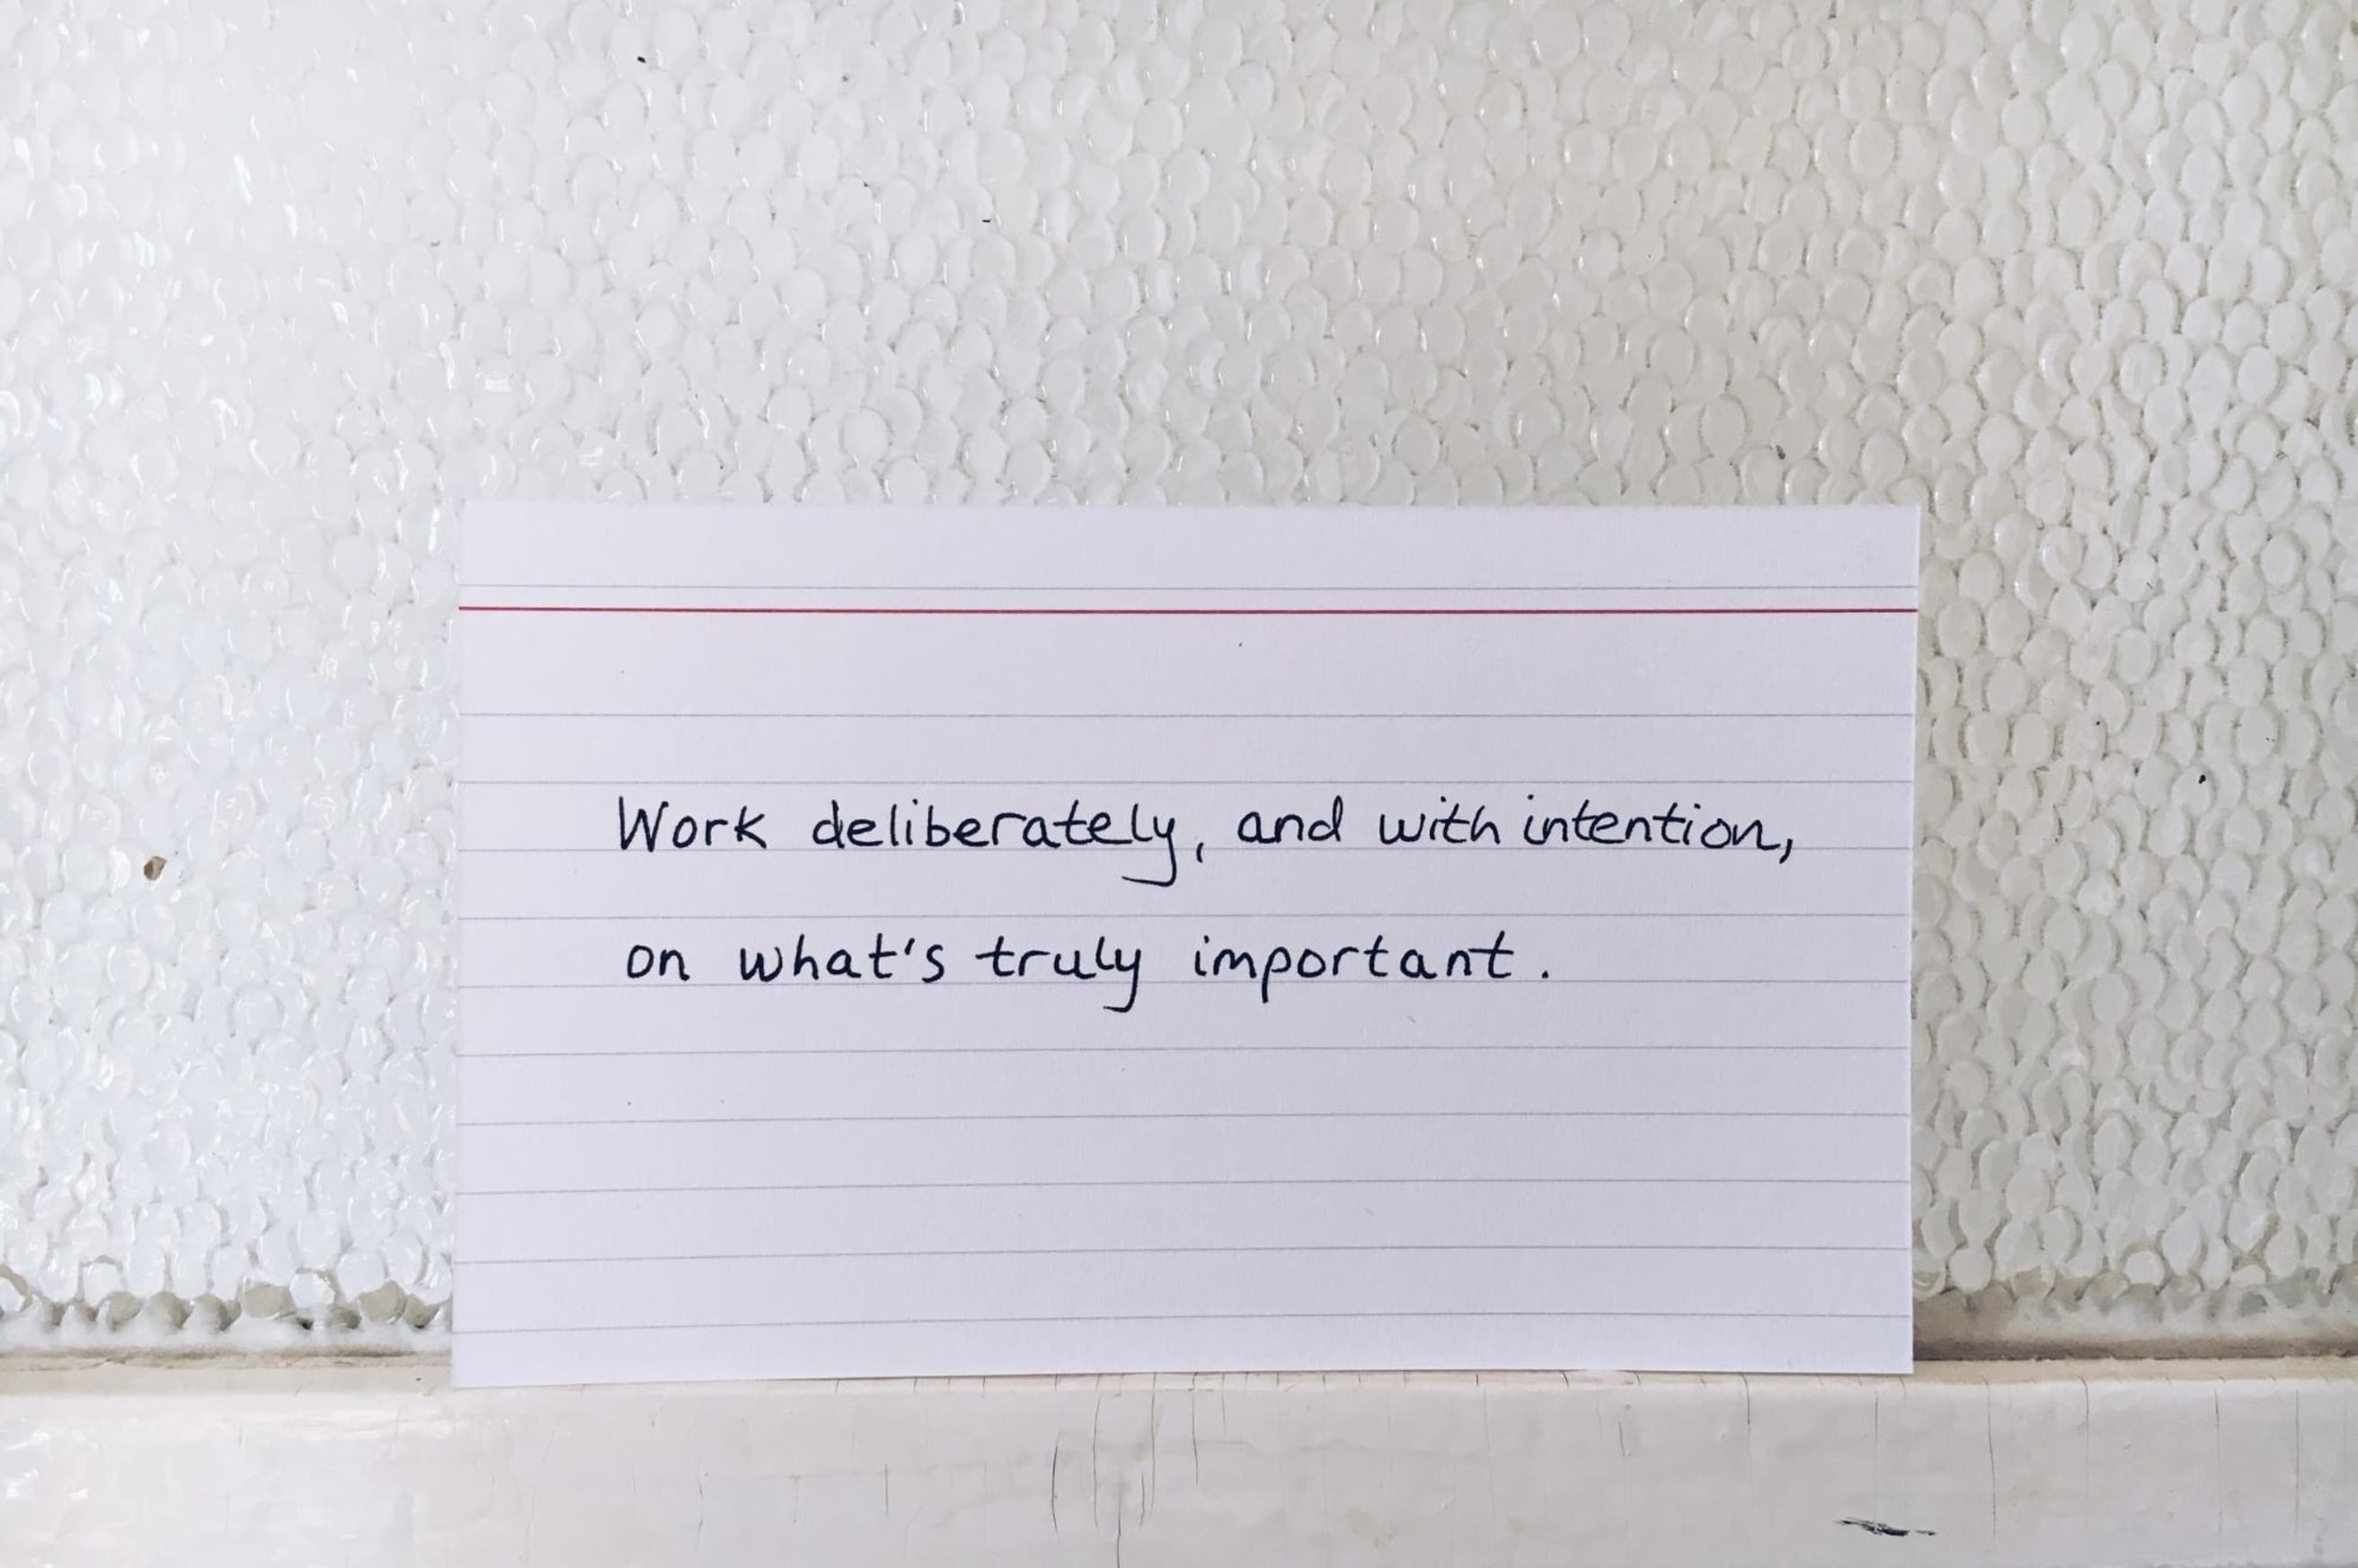 Work deliberately, and with intention,
on what's truly important.